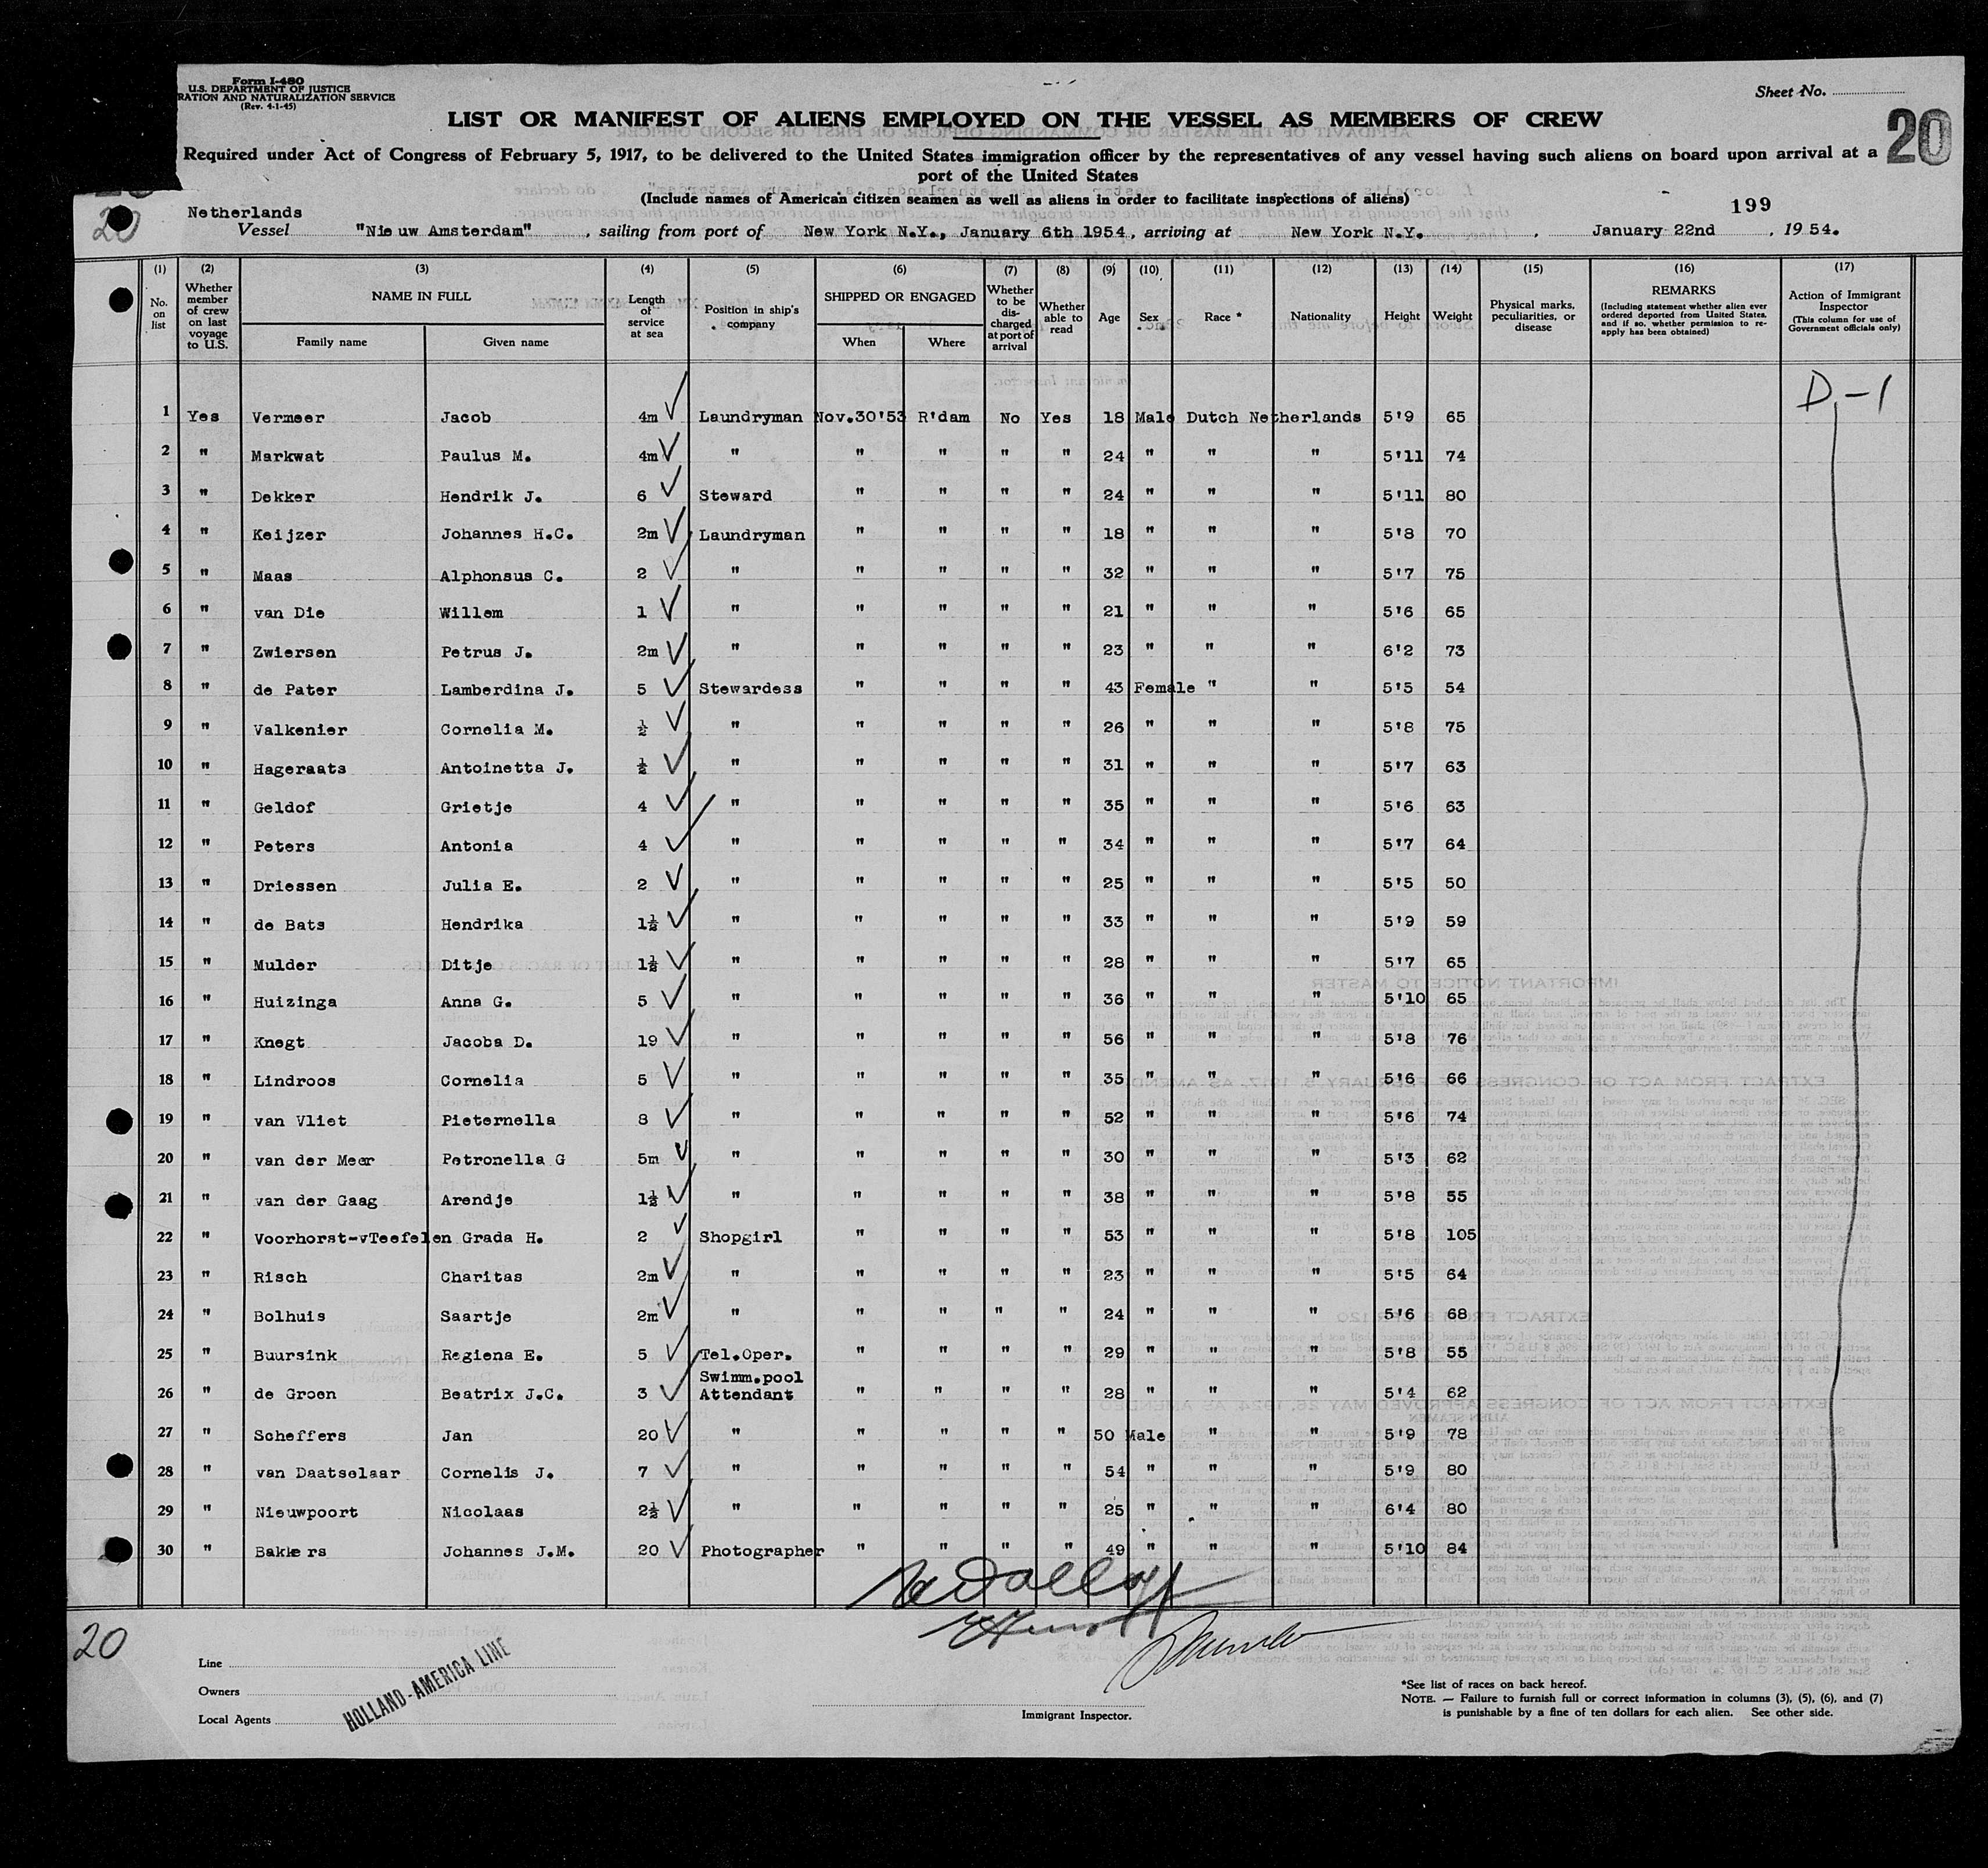 Form I-480
U.S. DEPARTMENT OF JUSTICE
RATION AND NATURALIZATION SERVICE
(Rev. 4-1-45)
Sheet No.
LIST OR MANIFEST OF ALIENS EMPLOYED ON THE VESSEL AS MEMBERS OF CREW
20
Required under Act of Congress of February 5, 1917, to be delivered to the United States immigration officer by the representatives of any vessel having such aliens on board upon arrival at a
port of the United States
(Include names of American citizen seamen as well as aliens in order to facilitate inspections of aliens)
199
20
Netherlands
Vessel "Nieuw Amsterdam", sailing from port of New York N.Y., January 6th 1954, arriving at New York N.Y., January 22nd, 1954.
(1) (2) (3) (4) (5) (6) (7) (8) (9) (10) (11) (12) (13) (14) (15) (16) (17)
No. on list
Whether member of crew on last voyage to U.S.
NAME IN FULL
Family name
Given name
Length of service at sea
Position in ship's company
SHIPPED OR ENGAGED
When
Where
Whether to be discharged at port of arrival
Whether able to read
Age
Sex
Race *
Nationality
Height
Weight
Physical marks, peculiarities, or disease
REMARKS
(Including statement whether alien ever ordered deported from United States, and if so, whether permission to re-apply has been obtained)
Action of Immigrant Inspector
(This column for use of Government officials only)
D-1
1 Yes Vermeer Jacob 4m Laundryman Nov.30'53 R'dam No Yes 18 Male Dutch Netherlands 5'9 65
2 " Markwat Paulus M. 4m " " " " " 24 " " " 5'11 74
3 " Dekker Hendrik J. 6 Steward " " " " 24 " " " 5'11 80
4 " Keijzer Johannes H.C. 2m Laundryman " " " " 18 " " " 5'8 70
5 " Maas Alphonsus C. 2 " " " " " 32 " " " 5'7 75
6 " van Die Willem 1 " " " " " 21 " " " 5'6 65
7 " Zwiersen Petrus J. 2m " " " " " 23 " " " 6'2 73
8 " de Pater Lamberdina J. 5 Stewardess " " " " 43 Female " " 5'5 54
9 " Valkenier Cornelia M. ½ " " " " " 26 " " " 5'8 75
10 " Hageraats Antoinetta J. ½ " " " " " 31 " " " 5'7 63
11 " Geldof Grietje 4 " " " " " 35 " " " 5'6 63
12 " Peters Antonia 4 " " " " " 34 " " " 5'7 64
13 " Driessen Julia E. 2 " " " " " 25 " " " 5'5 50
14 " de Bats Hendrika 1½ " " " " " 33 " " " 5'9 59
15 " Mulder Ditje 1½ " " " " " 28 " " " 5'7 65
16 " Huizinga Anna G. 5 " " " " " 36 " " " 5'10 65
17 " Knegt Jacoba D. 19 " " " " " 56 " " " 5'8 76
18 " Lindroos Cornelia 5 " " " " " 35 " " " 5'6 66
19 " van Vliet Pieternella 8 " " " " " 52 " " " 5'6 74
20 " van der Meer Petronella G 5m " " " " " 30 " " " 5'3 62
21 " van der Gaag Arendje 1½ " " " " " 38 " " " 5'8 55
22 " Voorhorst-vTeefelen Grada H. 2 Shopgirl " " " " 53 " " " 5'8 105
23 " Risch Charitas 2m " " " " " 23 " " " 5'5 64
24 " Bolhuis Saartje 2m " " " " " 24 " " " 5'6 68
25 " Buursink Regiena E. 5 Tel.Oper. " " " " 29 " " " 5'8 55
Swimm.pool
26 " de Groen Beatrix J.C. 3 Attendant " " " " 28 " " " 5'4 62
27 " Scheffers Jan 20 " " " " " 50 Male " " 5'9 78
28 " van Daatselaar Cornelis J. 7 " " " " " 54 " " " 5'9 80
29 " Nieuwpoort Nicolaas 2½ " " " " " 25 " " " 6'4 80
30 " Bakkers Johannes J.M. 20 Photographer " " " " 49 " " " 5'10 84
20
Line
Owners
Local Agents
HOLLAND-AMERICA LINE
Immigrant Inspector.
*See list of races on back hereof.
NOTE. — Failure to furnish full or correct information in columns (3), (5), (6), and (7)
is punishable by a fine of ten dollars for each alien. See other side.